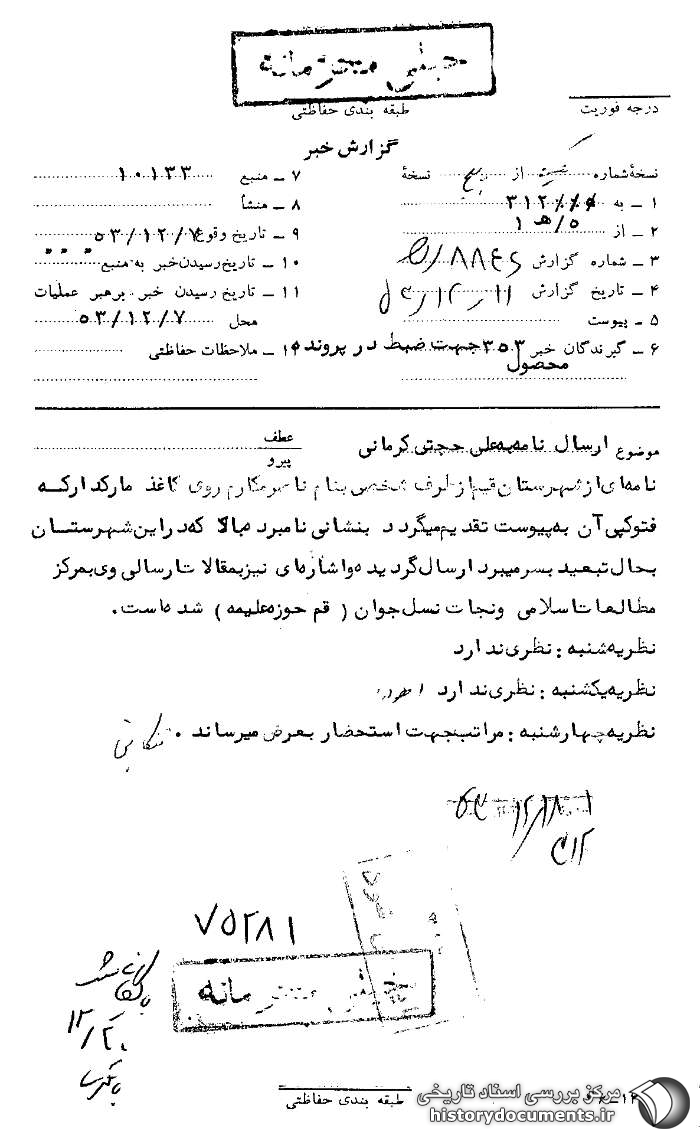 خیلی محرمانه
طبقه بندی حفاظتی
درجه فوریت
گزارش خبر
نسخهٔ شماره از نسخهٔ
۱ ـ به ۳۱۲
۲ ـ از ۵/هـ ۱
۳ ـ شماره گزارش
۴ ـ تاریخ گزارش
۵ ـ پیوست
۶ ـ گیرندگان خبر ۳۵۳ جهت ضبط در پرونده
محصول
۷ ـ منبع ۱۰۱۳۳
۸ ـ منشأ
۹ ـ تاریخ وقوع ۵۳/۱۲/۷
۱۰ ـ تاریخ رسیدن خبر به منبع
۱۱ ـ تاریخ رسیدن خبر برهبر عملیات
محل ۵۳/۱۲/۷
۱۲ ـ ملاحظات حفاظتی
موضوع ارسال نامه به علی حجتی کرمانی
عطف
پیرو
نامه ای از شهرستان قم از طرف شخصی بنام ناصر مکارم روی کاغذ مارکدار که
فتوکپی آن به پیوست تقدیم میگردد بنشانی نامبرده بالا که در این شهرستان
بحال تبعید بسر میبرد ارسال گردیده و اشاره ای نیز بمقالات ارسالی وی بمرکز
مطالعات اسلامی و نجات نسل جوان ( قم حوزه علیمه ) شده است .
نظریه شنبه : نظری ندارد
نظریه یکشنبه : نظری ندارد
نظریه چهارشنبه : مراتب جهت استحضار بعرض میرساند .
۷۵۲۸۱
خیلی محرمانه
طبقه بندی حفاظتی
مرکز بررسی اسناد تاریخی
historydocuments.ir